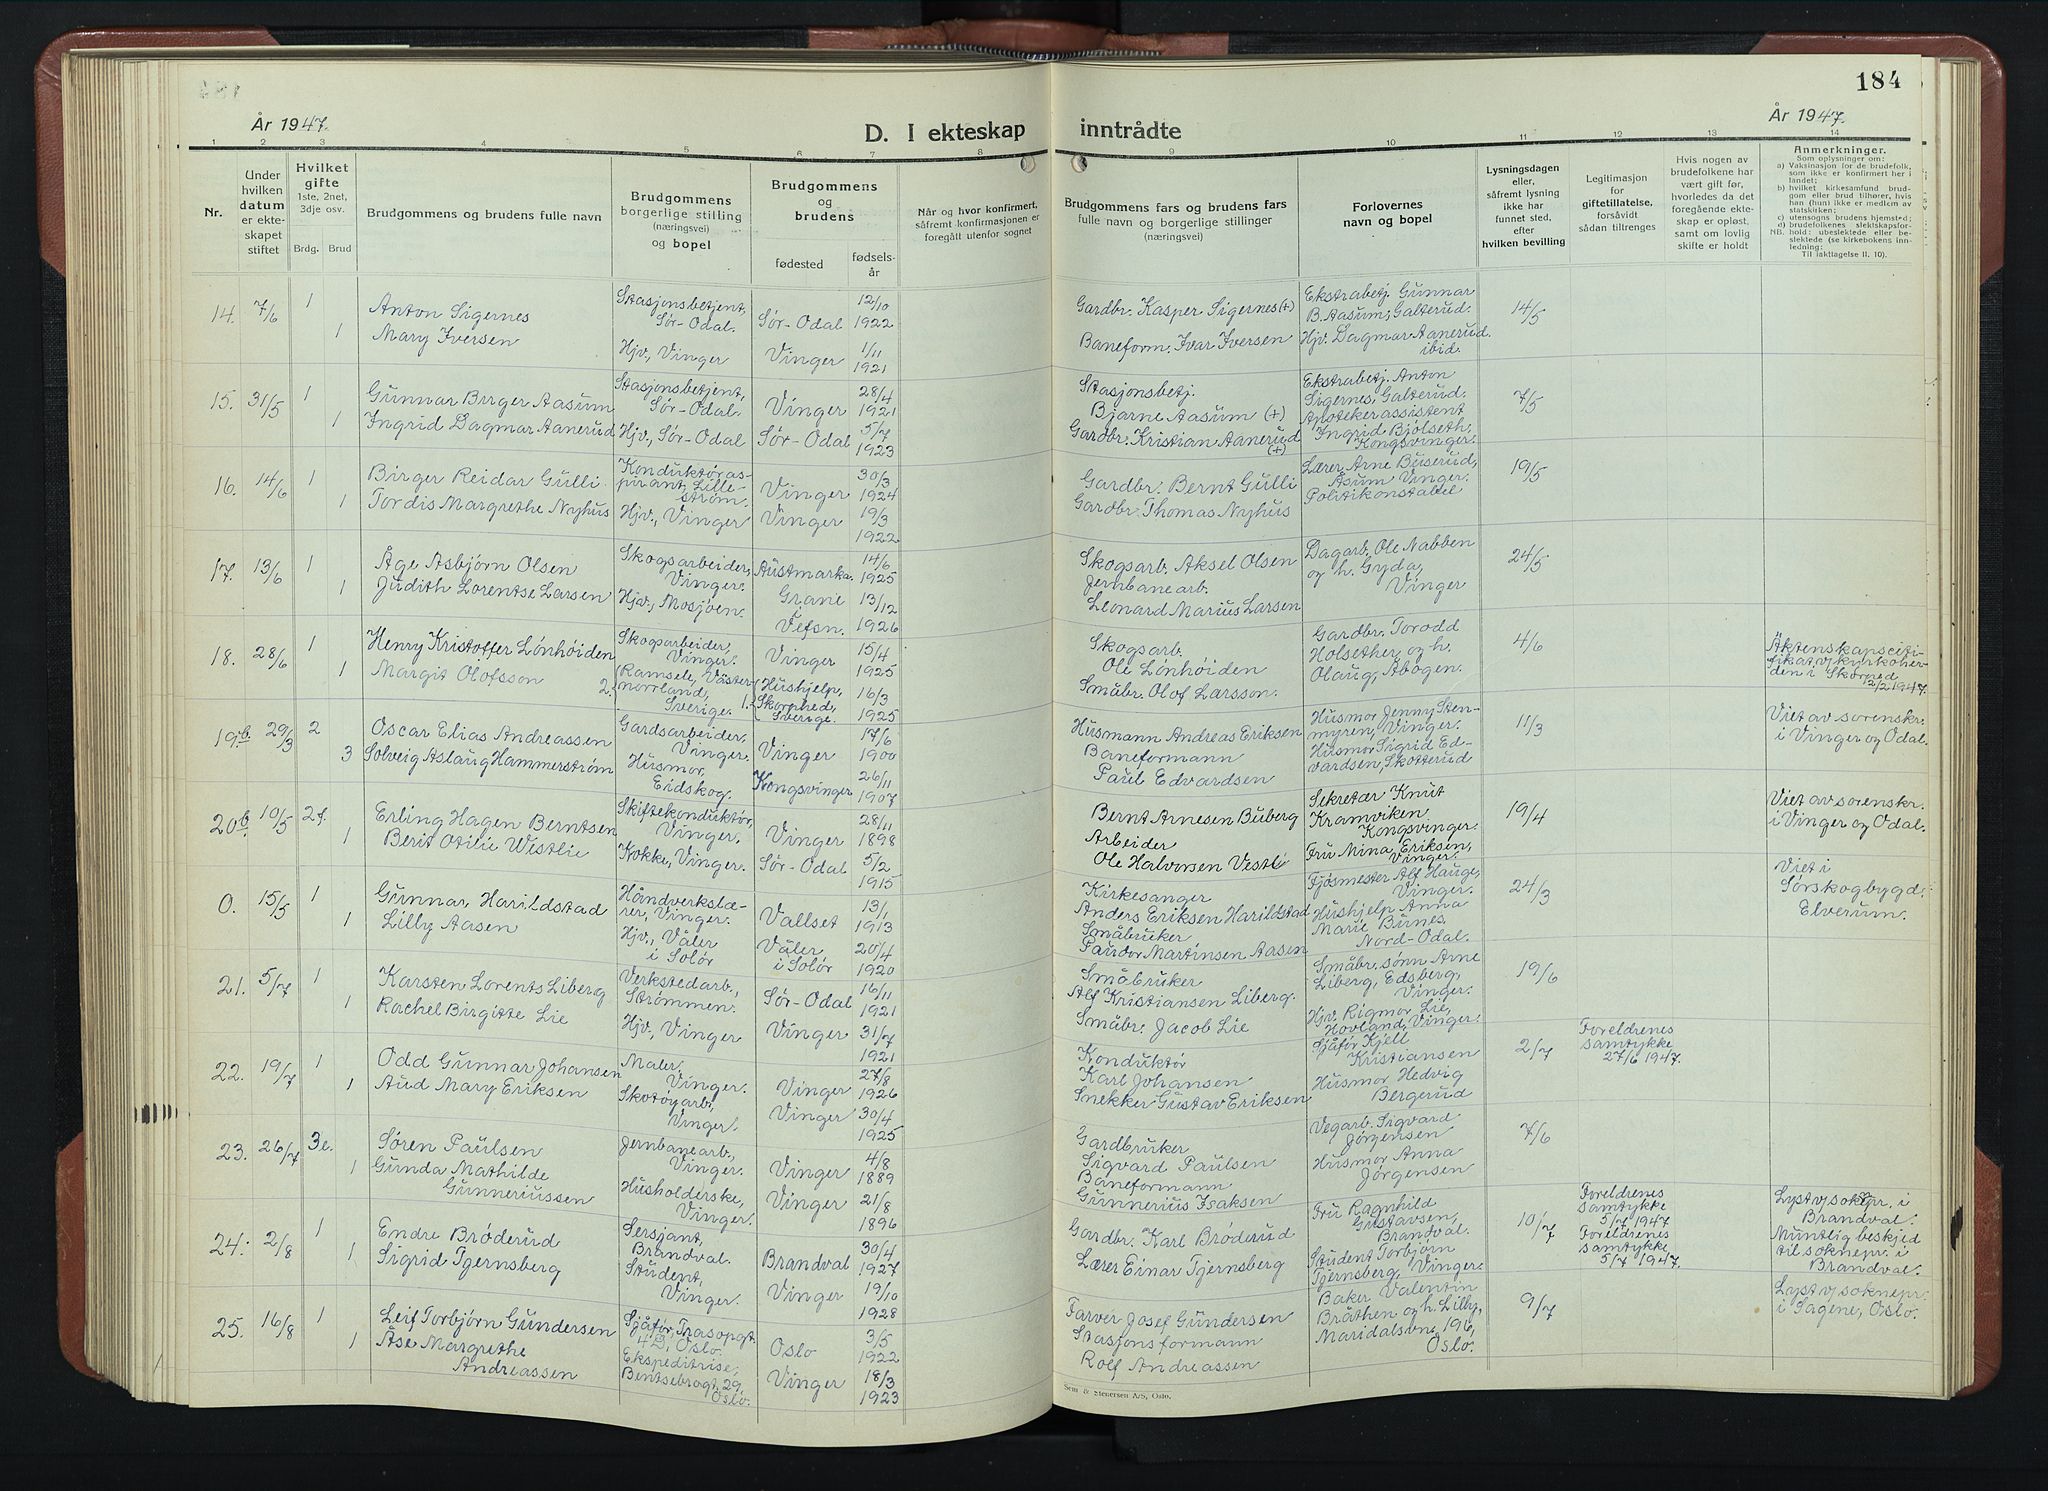 184
År 1947.
D. I ekteskap inntrådte
År 1947.
1 2 3 4 5 6 7 8 9 10 11 12 13 14
Nr.
Under hvilken datum er ekteskapet stiftet
Hvilket gifte 1ste, 2net, 3dje osv.
Brdg. Brud
Brudgommens og brudens fulle navn
Brudgommens borgerlige stilling (næringsvei) og bopel
Brudgommens og brudens
fødested
fødselsår
Når og hvor konfirmert, såfremt konfirmasjonen er foregått utenfor sognet
Brudgommens fars og brudens fars fulle navn og borgerlige stillinger (næringsvei)
Forlovernes navn og bopel
Lysningsdagen eller, såfremt lysning ikke har funnet sted, efter hvilken bevilling
Legitimasjon for giftetillatelse, forsåvidt sådan tiltrenges
Hvis nogen av brudefolkene har vært gift før, hvorledes da det foregående ekteskap er opløst, samt om lovlig skifte er holdt
Anmerkninger.
Som oplysninger om:
a) Vaksinasjon for de brudefolk, som ikke er konfirmert her i landet;
b) hvilket kirkesamfund brudgom eller brud tilhører, hvis han (hun) ikke er medlem av statskirken;
c) utensogns brudens hjemsted;
d) brudefolkenes slektskapsforhold: ubeslektede eller beslektede (se kirkebokens innledning:
NB.
Til iakttagelse II. 10).
14. 7/6 1 Anton Sigernes Stasjonsbetjent, Sør-Odal. Sør-Odal 12/10 1922 Gardbr. Kasper Sigernes (+) Ekstrabetj. Gunnar B. Aasum, Galterud. 14/5
1 Mary Iversen Hjv., Vinger Vinger 1/11 1921 Baneform. Ivar Iversen Hjv. Dagmar Aanerud ibid.
15. 31/5 1 Gunnar Birger Aasum Stasjonsbetjent, Sør-Odal. Vinger 28/4 1921 Stasjonsbetj. Bjarne Aasum (+) Ekstrabetj. Anton Sigernes, Galterud. 7/5
1 Ingrid Dagmar Aanerud Hjv., Sør-Odal Sør-Odal 5/7 1923 Gardbr. Kristian Aanerud (+) Apotekerassistent Ingrid Bjølseth, Kongsvinger.
16. 14/6 1 Birger Reidar Gulli Konduktøraspirant, Lillestrøm. Vinger 30/3 1924 Gardbr. Bernt Gulli Lærer Arne Buserud, Åsum Vinger. 19/5
1 Tordis Margrethe Nyhus Hjv., Vinger Vinger 19/3 1922 Gardbr. Thomas Nyhus Politikonstabel
17. 13/6 1 Åge Asbjørn Olsen Skogsarbeider, Vinger. Austmarka. 14/6 1925 Skogsarb. Aksel Olsen Dagarb. Ole Nabben og h. Gyda, Vinger 24/5
1 Judith Lorentse Larsen Hjv., Mosjøen. Grane i Vefsn. 13/12 1926 Jernbanearb. Leonard Marius Larsen
18. 28/6 1 Henry Kristoffer Lønhøiden Skogsarbeider, Vinger. Vinger 15/4 1925 Skogsarb. Ole Lønhøiden Gardbr. Torodd Holsether og h. Olaug, Åbogen. 4/6 Äktenskapscitifikat v/ kyrkoherden i Skorped 2/2 1947.
1 Margit Olofsson 2. Ramsele, Västernorrland, Sverige. 1. Hushjelp, Skorphed, Sverige. 16/3 1925 Småbr. Olof Larsson.
19.b. 29/3 2 Oscar Elias Andreassen Gardsarbeider, Vinger. Vinger 17/6 1900 Husmann Andreas Eriksen Husmor Jenny Stenmyren, Vinger. 11/3 Viet av sorenskr. i Vinger og Odal.
3 Solveig Aslaug Hammerstrøm Husmor, Eidskog. Kongsvinger 26/11 1907 Baneformann Paul Edvardsen Husmor Sigrid Edvardsen, Skotterud
20b. 10/5 2f. Erling Hagen Berntsen Skiftekonduktør, Vinger. Vinger 28/11 1898 Bernt Arnesen Buberg Sekretær Knut Kramviken Kongsvinger. 19/4 Viet av sorenskr. i Vinger og Odal.
1 Berit Otilie Westlie Kokke, Vinger. Sør-Odal 5/2 1915 Arbeider Ole Halvorsen Vestli Fru Mina Eriksen, Vinger.
0. 15/5 1 Gunnar Harildstad Håndverkslærer, Vinger. Vallset 13/1 1913 Kirkesanger Anders Eriksen Harildstad Fjøsmester Alf Hauge, Vinger. 24/3 Viet i Sørskogbygda Elverum.
1 Lilly Aasen Hjv., Våler i Solør Våler i Solør 20/4 1920 Småbruker Paudor Martinsen Aasen Hushjelp Anna Marie Bunes. Nord-Odal.
21. 5/7 1 Karsten Lorents Liberg Verkstedarb., Strømmen. Sør-Odal 16/11 1921 Småbruker Alf Kristiansen Liberg. Småbr. sønn Arne Liberg, Edsberg, Vinger. 19/6
1 Rachel Birgitte Lie Hjv., Vinger Vinger 31/7 1921 Småbr. Jacob Lie Hjv. Rigmor Lie, Hovland, Vinger.
22. 19/7 1 Odd Gunnar Johansen Maler, Vinger. Vinger 27/8 1926 Konduktør Karl Johansen Sjåfør Kjell Kristiansen 2/7 Foreldrenes samtykke 27/6 1947.
1 Aud Mary Eriksen Skotøyarb., Vinger. Vinger 30/4 1925 Snekker Gustav Eriksen Husmor Hedvig Bergerud
23. 26/7 3e. Søren Paulsen Jernbanearb., Vinger. Vinger 4/8 1889 Gardbruker Sigvard Paulsen Vegarb. Sigvard Jørgensen 7/6
1 Gunda Mathilde Gunneriussen Husholderske, Vinger. Vinger 21/8 1896 Baneformann Gunnerius Isaksen Husmor Anna Jørgensen
24. 2/8 1 Endre Brøderud Sersjant, Brandval. Brandval 30/4 1927 Gardbr. Karl Brøderud Fru Ragnhild Gustavsen, Brandval. 10/7 Foreldrenes samtykke 5/7 1947 Lyst v/ soknepr. i Brandval.
1 Sigrid Tjernsberg Student, Vinger. Vinger 19/10 1928 Lærer Einar Tjernsberg Student Torbjørn Tjernsberg, Vinger. Foreldrenes samtykke 5/7 1947. Muntlig beskjed til soknepr. i Brandval.
25. 16/8 1 Leif Torbjørn Gundersen Sjåfør, Trasopgt. 4D, Oslo. Oslo 3/5 1922 Farver Josef Gundersen Baker Valentin Bråthen og h. Lilly, Maridalsvn. 196, Oslo. 9/7 Lyst v/ soknepr. i Sagene, Oslo.
1 Åse Margrethe Andreassen Ekspeditrise, Bentsebrogt. 29, Oslo. Vinger 18/3 1923 Stasjonsformann Rolf Andreassen
Sem & Stenersen A/S, Oslo.